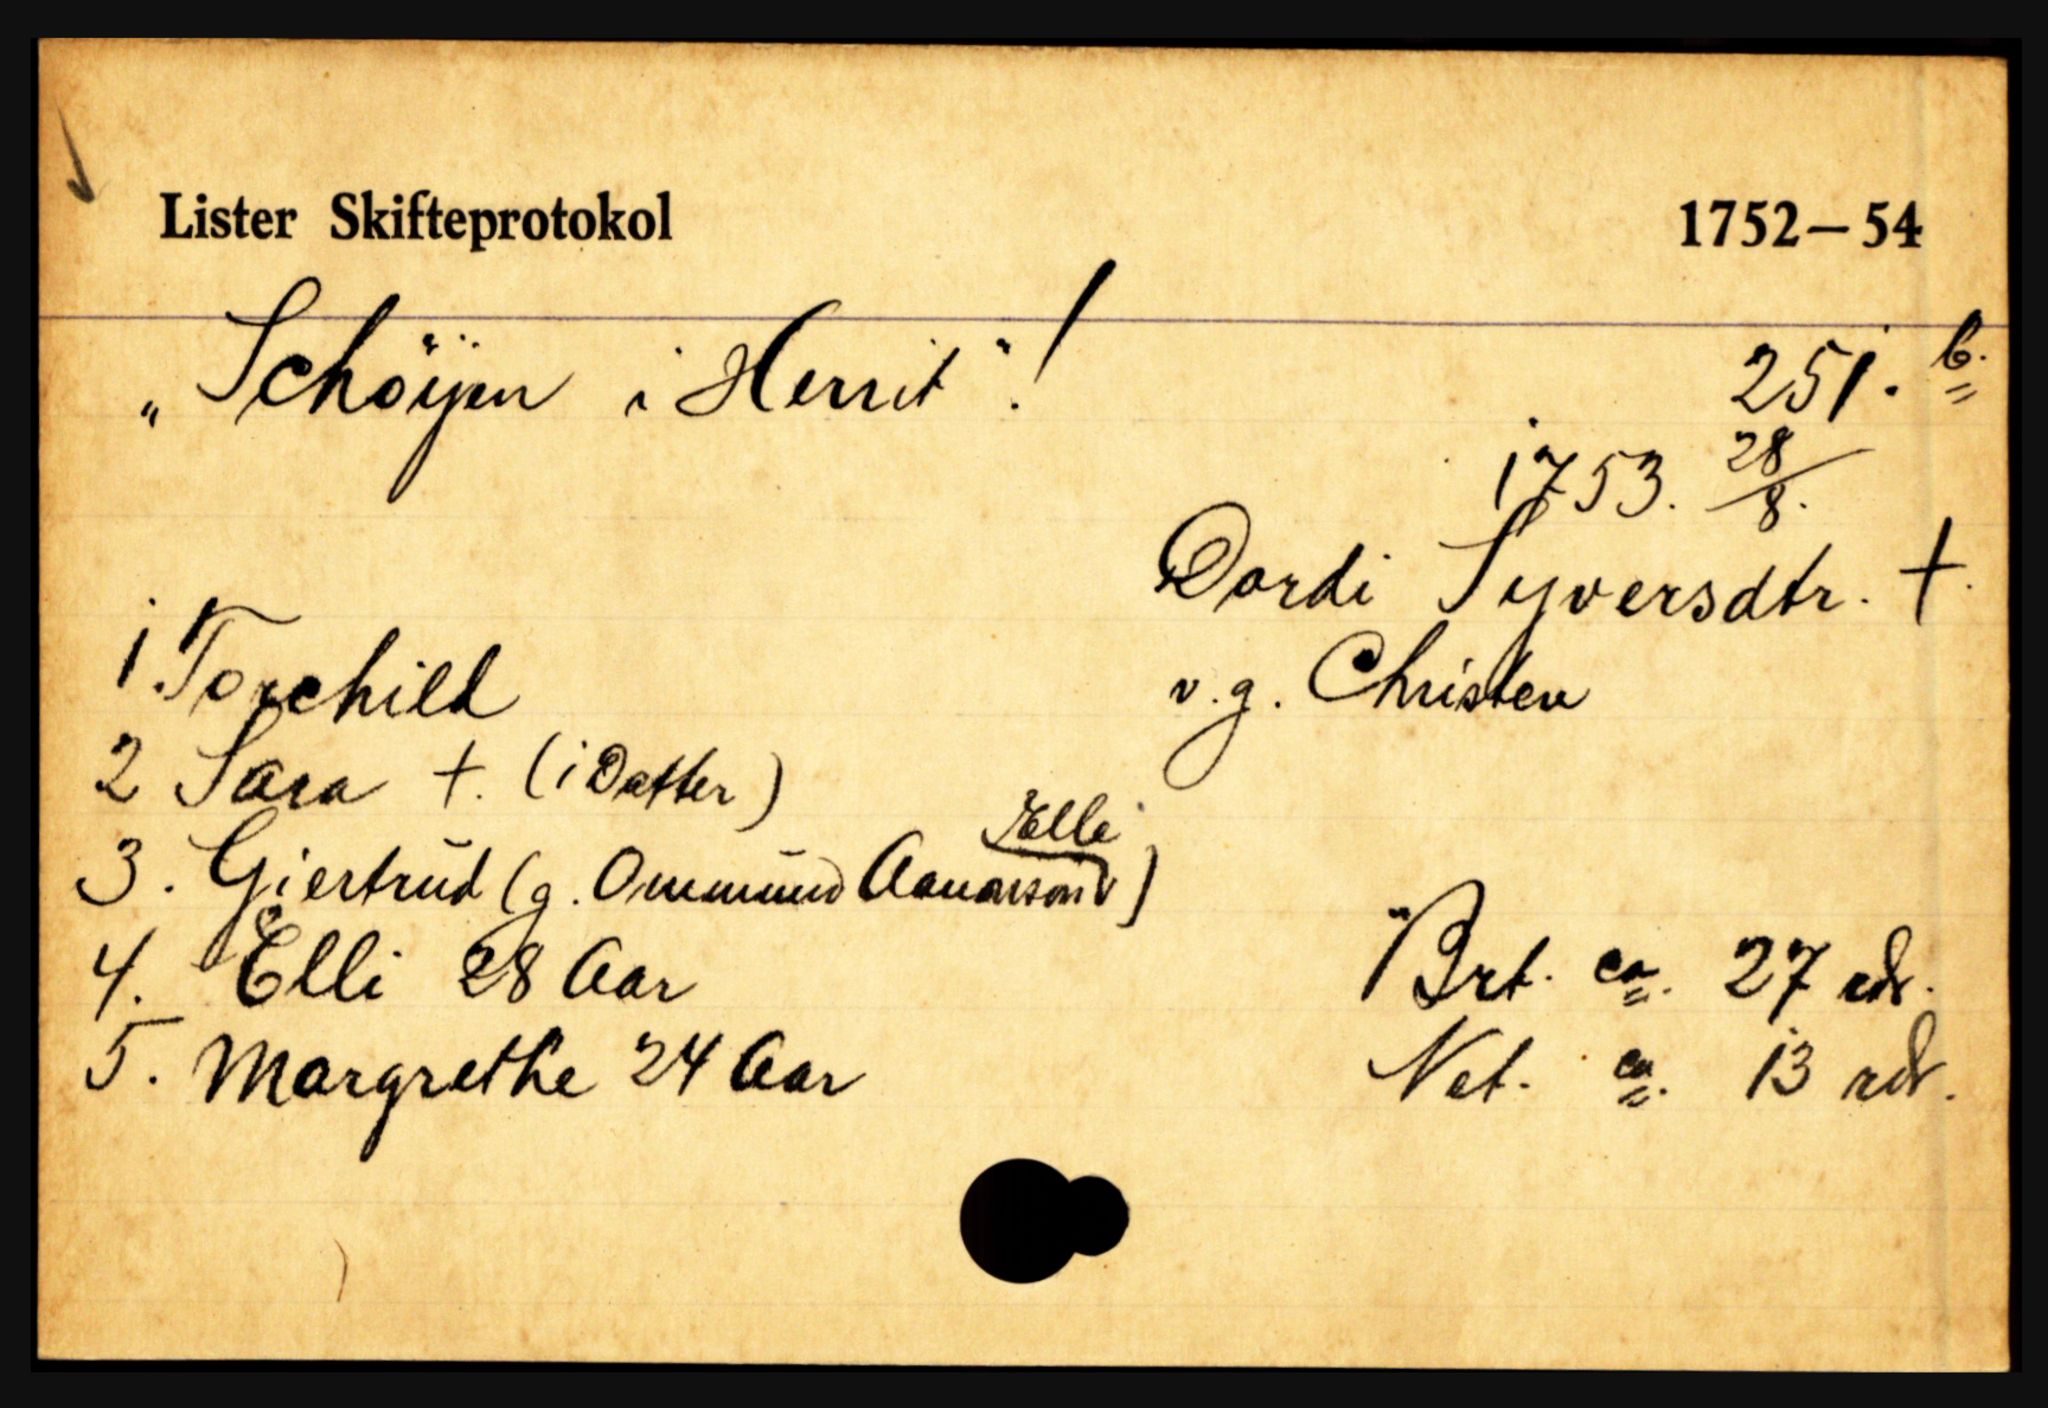 Lister Skifteprotokol 1752—54
„Schöijen i Herrit"! 251. b.
1753. 28/8.
Dordi Syversdtr. †.
1. Torchild v.g. Christen
2 Sara †. (1 Datter)
Elli
3. Giertrud (g. Ommund Aanonson)
4. Elli 28 Aar Brt. ca. 27 rdr.
5. Margrethe 24 Aar Net. ca. 13 rdr.